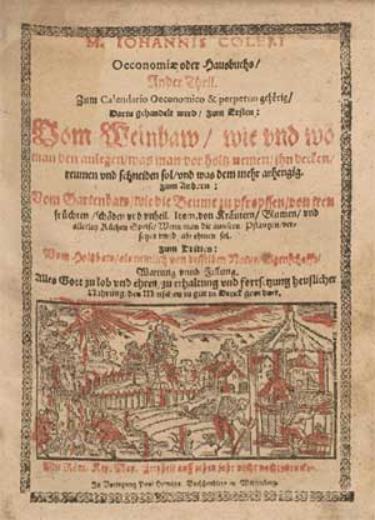 M. IOHANNIS COLERI
Oeconomiæ oder Hausbuchs/
Ander Theil.
Zum Calendario Oeconomico & perpetuo gehörig/
Darin gehandelt wird/ zum Ersten:
Vom Weinbaw/ wie vnd wo
man den anlegen/was man vor holtz nemen/ jhn decken/
reumen vnd schneiden sol/vnd was dem mehr anhengig.
zum Andern:
Vom Gartenbaw/wie die Beume zu pfropffen/von jren
früchten/Schäden vnd vnheil. Item,von Kräutern/ Blumen/ vnd
allerley Küchen Speise/
zum Dritten:
Vom Holtzbaw/ Eigenschafft/
Wartung vnnd
Alles Gott zu lob vnd ehren/zu erhaltung vnd fortsetzung heuslicher
Nahrung den Menschen zu gut in Druck
Mit Röm. Key. May. Freyheit auff zehen jahr nicht nachzudrucken.
In Verlegung Paul Helwigs Buchhendlers in Wittenberg.